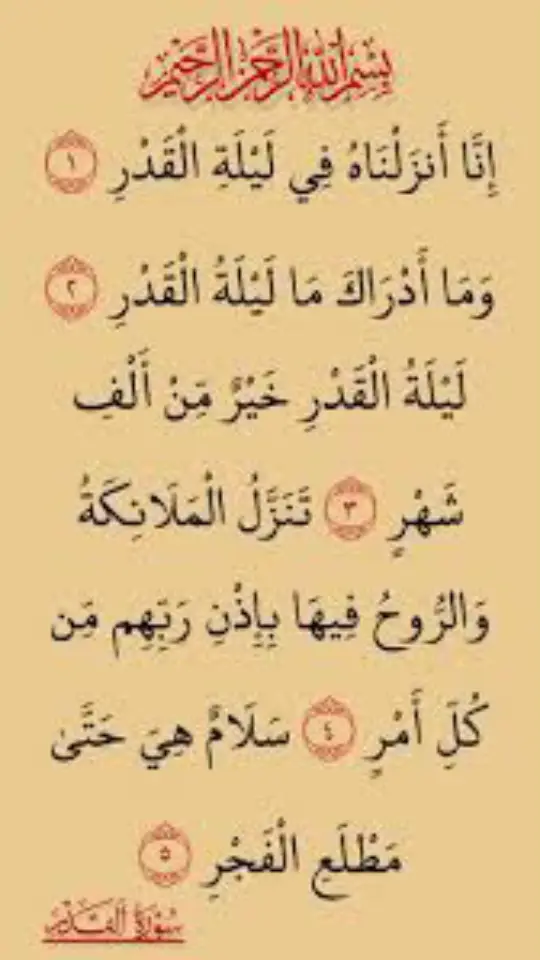 بِسْمِ اللَّهِ الرَّحْمَٰنِ الرَّحِيمِ
إِنَّا أَنزَلْنَاهُ فِي لَيْلَةِ الْقَدْرِ ١
وَمَا أَدْرَاكَ مَا لَيْلَةُ الْقَدْرِ ٢
لَيْلَةُ الْقَدْرِ خَيْرٌ مِّنْ أَلْفِ
شَهْرٍ ٣ تَنَزَّلُ الْمَلَائِكَةُ
وَالرُّوحُ فِيهَا بِإِذْنِ رَبِّهِم مِّن
كُلِّ أَمْرٍ ٤ سَلَامٌ هِيَ حَتَّىٰ
مَطْلَعِ الْفَجْرِ ٥
سُورَة القَدْر